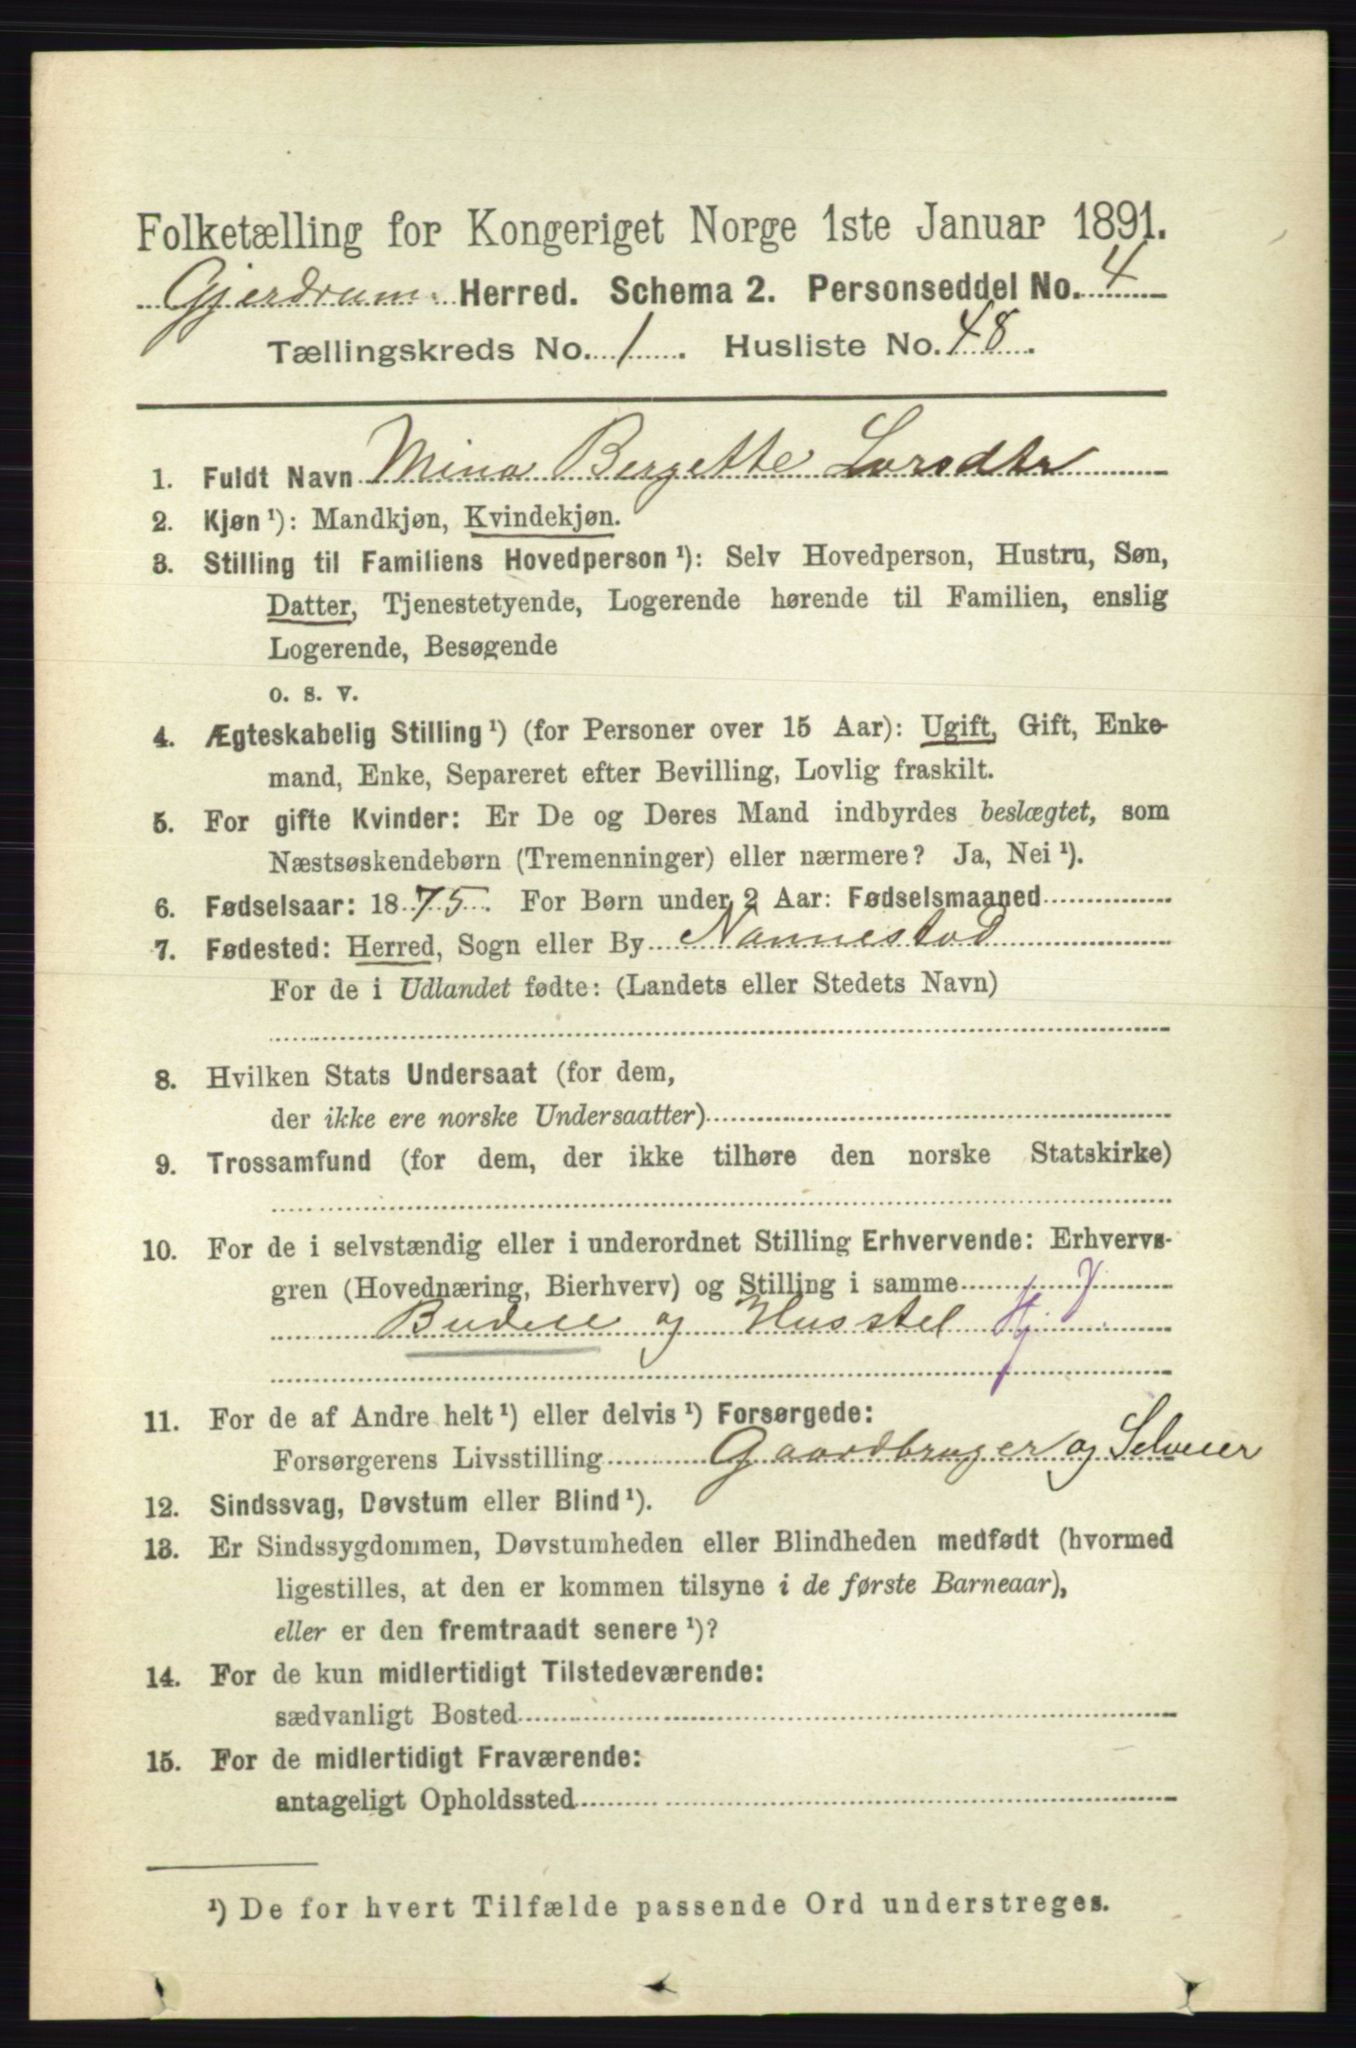 Folketælling for Kongeriget Norge 1ste Januar 1891.
Gjerdrum Herred. Schema 2. Personseddel No. 4
Tællingskreds No. 1. Husliste No. 48.
1. Fuldt Navn Mina Bergette Larsdtr
2. Kjøn ¹): Mandkjøn, Kvindekjøn.
3. Stilling til Familiens Hovedperson ¹): Selv Hovedperson, Hustru, Søn,
Datter, Tjenestetyende, Logerende hørende til Familien, enslig
Logerende, Besøgende
o. s. v.
4. Ægteskabelig Stilling ¹) (for Personer over 15 Aar): Ugift, Gift, Enke-
mand, Enke, Separeret efter Bevilling, Lovlig fraskilt.
5. For gifte Kvinder: Er De og Deres Mand indbyrdes beslægtet, som
Næstsøskendebørn (Tremenninger) eller nærmere? Ja, Nei ¹).
6. Fødselsaar: 1875. For Børn under 2 Aar: Fødselsmaaned
7. Fødested: Herred, Sogn eller By Nannestad
For de i Udlandet fødte: (Landets eller Stedets Navn)
8. Hvilken Stats Undersaat (for dem,
der ikke ere norske Undersaatter)
9. Trossamfund (for dem, der ikke tilhøre den norske Statskirke)
10. For de i selvstændig eller i underordnet Stilling Erhvervende: Erhvervs-
gren (Hovednæring, Bierhverv) og Stilling i samme
Budeie og Husstel
11. For de af Andre helt ¹) eller delvis ¹) Forsørgede:
Forsørgerens Livsstilling Gaardbruger og Selveier
12. Sindssvag, Døvstum eller Blind ¹).
13. Er Sindssygdommen, Døvstumheden eller Blindheden medfødt (hvormed
ligestilles, at den er kommen tilsyne i de første Barneaar),
eller er den fremtraadt senere ¹)?
14. For de kun midlertidigt Tilstedeværende:
sædvanligt Bosted
15. For de midlertidigt Fraværende:
antageligt Opholdssted
¹) De for hvert Tilfælde passende Ord understreges.